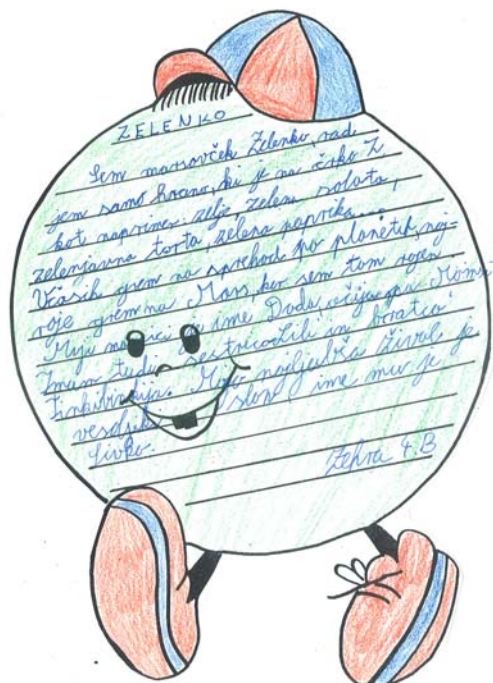 ZELENKO
Sem marsovček Zelenko, rad
jem samo hrano, ki je na črko Z
kot naprimer: zelje, zelena solata,
zelenjavna torta, zelena paprika...
Včasih grem na sprehod po planetih, naj-
raje grem na Mars, ker sem tam rojen.
Moji je ime Duda, očiju pa
Imam tudi sestrico Lili in bratca
Moja najljubša žival je
vesoljski slon ime mu je
Sivko.
Zehra 4. B